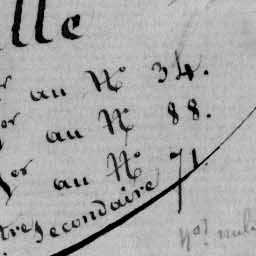 lle
er au Nº 34.
er au Nº 88.
er au Nº 71.
tre secondaire